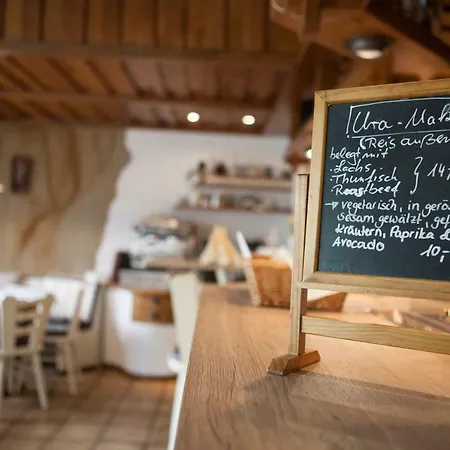 Ura-Mak
(Reis außen
belegt mit
· Lachs
· Thunfisch } 14
· Roastbeef
→ vegetarisch, in gerö
Sesam gewälzt, gef
Kräutern, Paprika &
Avocado 10,-